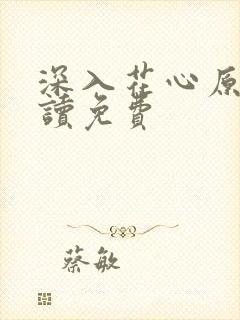 深入花心原
讀免費
蔡敏